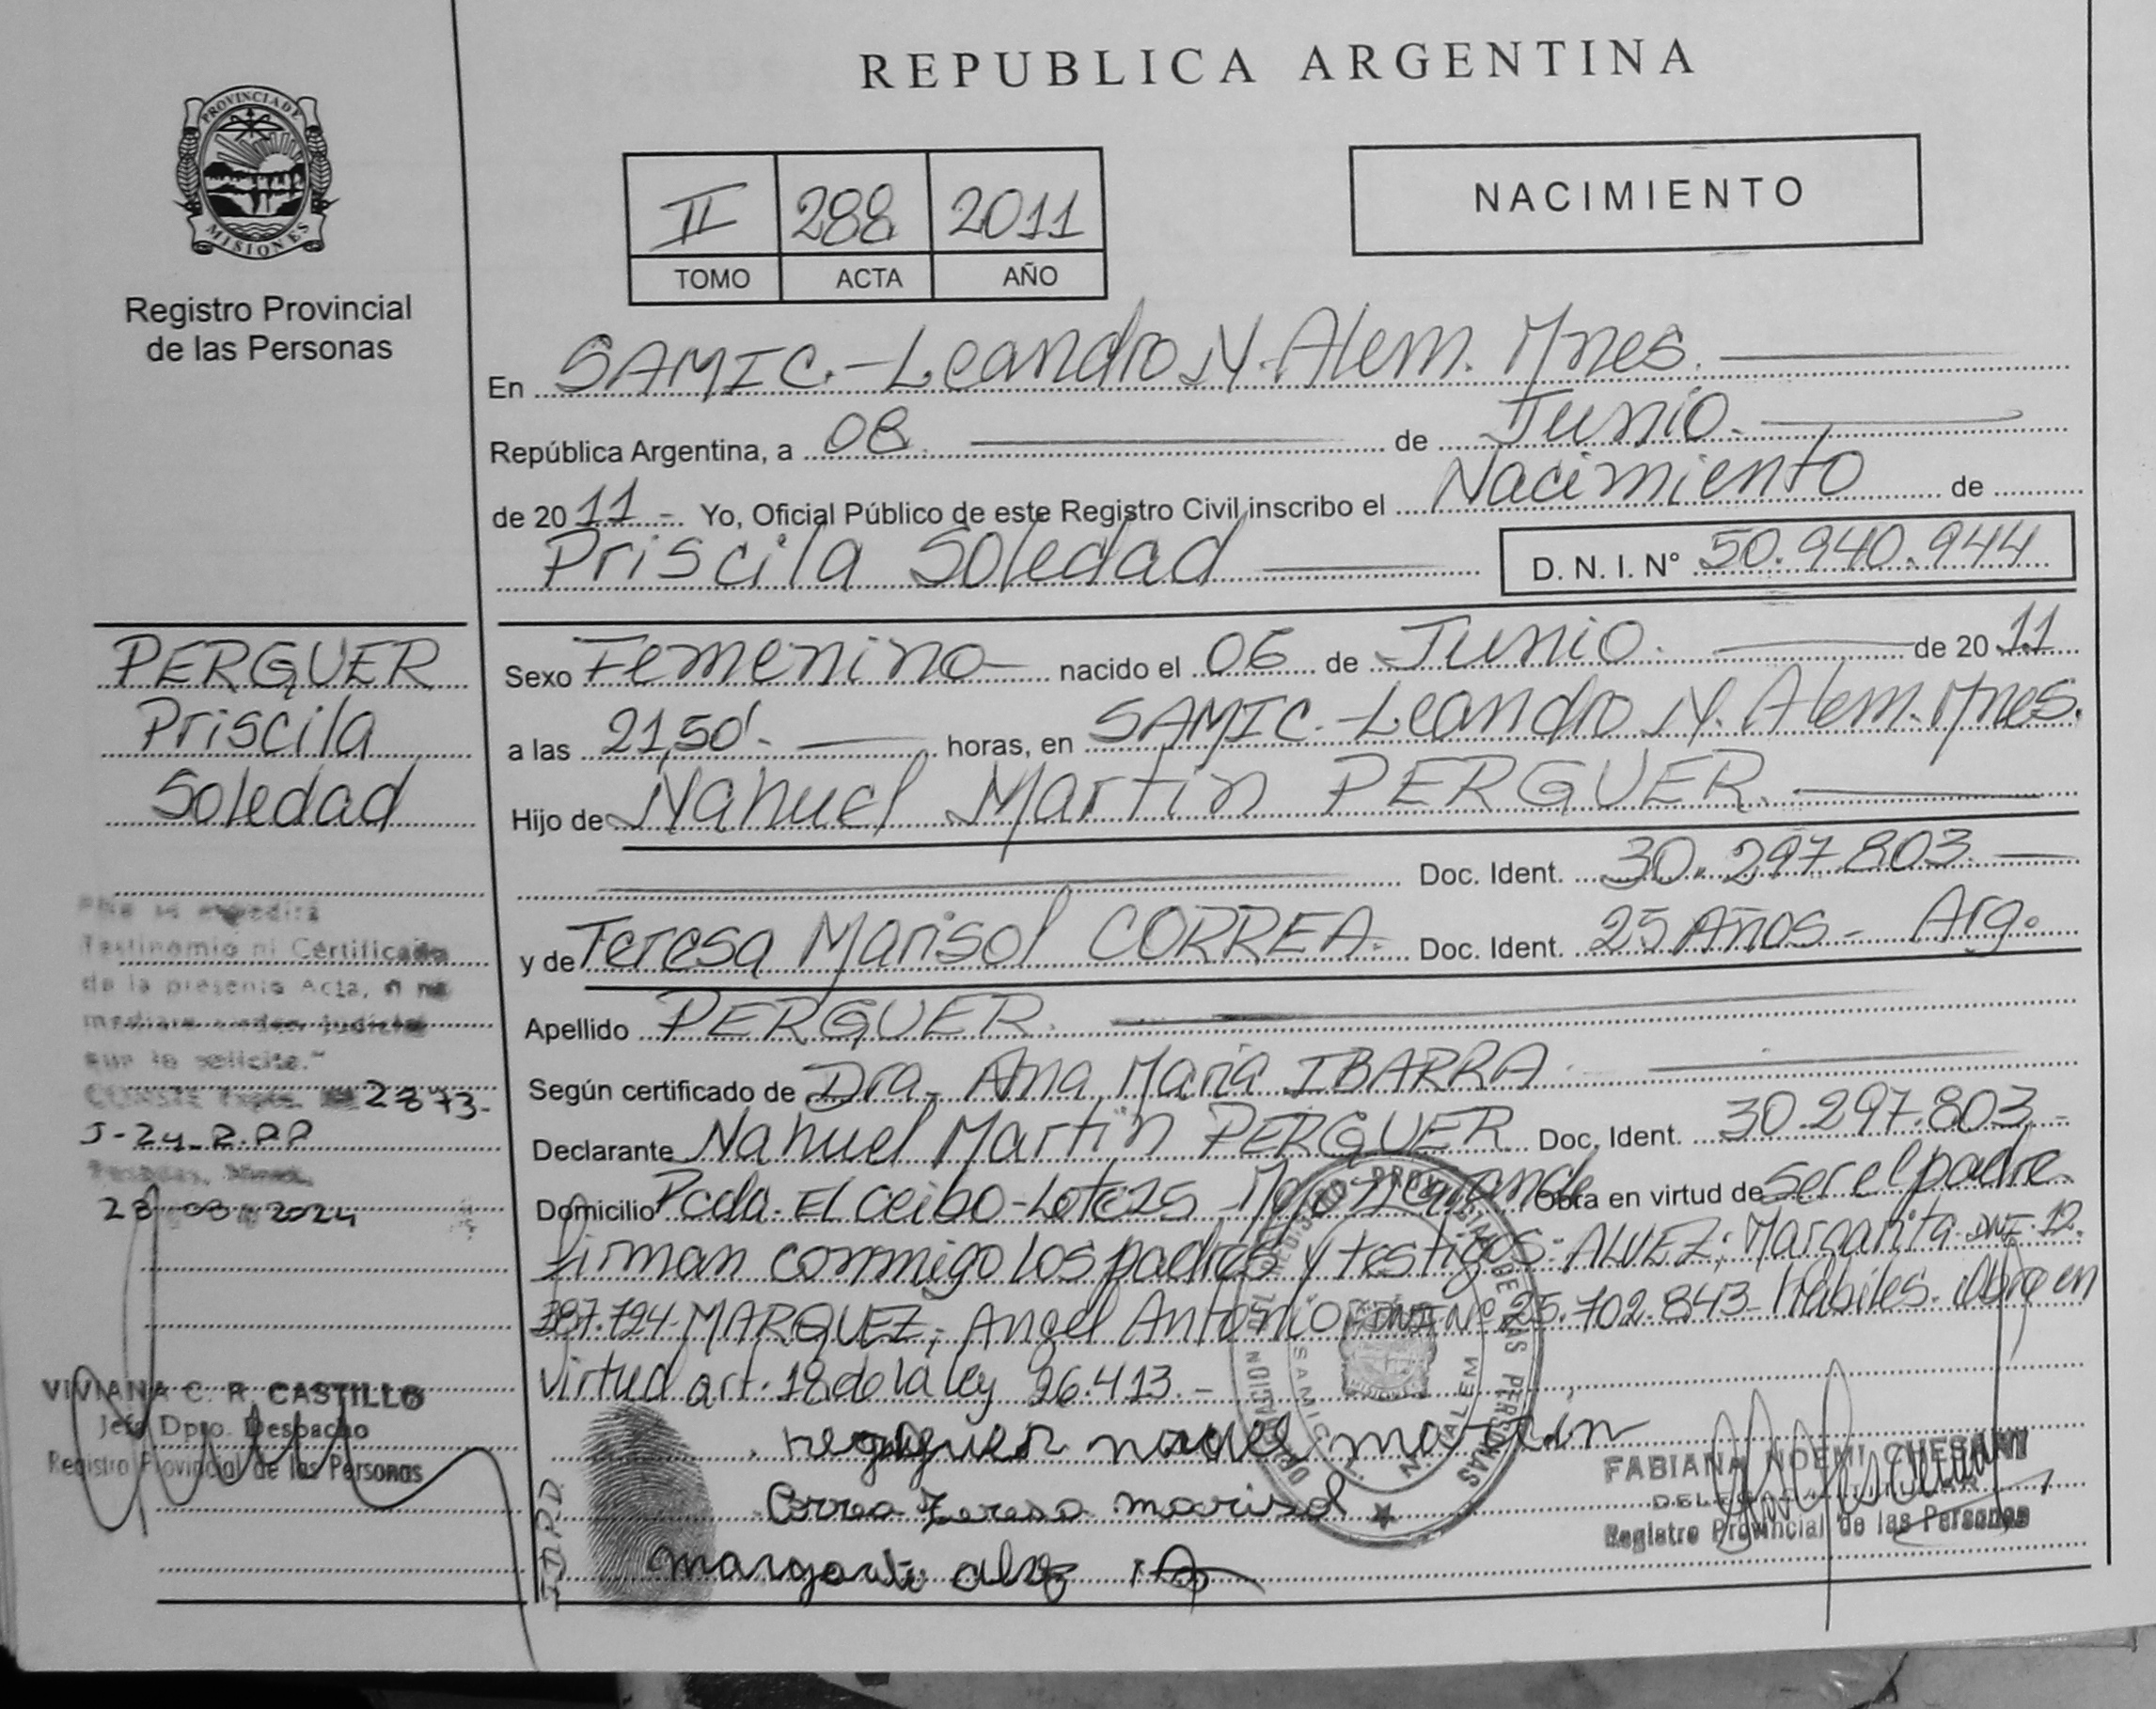 REPUBLICA ARGENTINA
PROVINCIA DE
MISIONES
Registro Provincial
de las Personas
II 288 2011
TOMO ACTA AÑO
NACIMIENTO
En SAMIC.-Leandro N. Alem. Mnes.
República Argentina, a 08 de Junio.
de 2011 - Yo, Oficial Público de este Registro Civil inscribo el Nacimiento de
Priscila Soledad D. N. I. Nº 50.940.944
PERGUER
Priscila
Soledad
Sexo Femenino nacido el 06 de Junio. de 2011
a las 21,50'- horas, en SAMIC.-Leandro N. Alem. Mnes.
Hijo de Nahuel Martin PERGUER.
Doc. Ident. 30.297.803
y de Teresa Marisol CORREA. Doc. Ident. 25 Años - Arg.
Apellido PERGUER.
Según certificado de Dra. Ana Maria IBARRA
Declarante Nahuel Martin PERGUER Doc. Ident. 30.297.803.-
Domicilio Pcda. El ceibo-Lote 25 Obra en virtud de ser el padre.
firman conmigo los padres y testigos: ALVEZ; Margarita DNI. 12.
387.724- MARQUEZ; Angel Antonio DNI Nº 25.702.843- hábiles. Obra en
virtud art. 18 de la ley 26.413.-
Testimonio ni Certificado
de la presente Acta,
judicial
que lo solicite."
CONSTE Expte. 2873-
J-24-R.PP
Posadas, Mnes.
28 08 2024
VIVIANA C. R. CASTILLO
Jefe Dpto. Despacho
Registro Provincial de las Personas
martin
Correa Teresa marisol
I.D.P.D.
REGISTRO PROVINCIAL DE LAS PERSONAS
SAMIC
N. ALEM
FABIANA NOEMI
Registro Provincial de las Personas